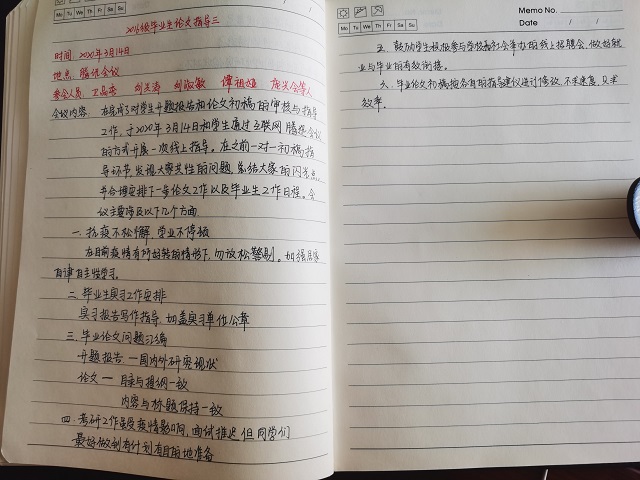 Mo Tu We Th Fr Sa Su
2016级毕业生论文指导三
时间 2020年3月14日
地点 腾讯会议
参会人员
会议内容: 在完成了对学生开题报告和论文初稿的审核与指导
工作, 于2020年3月14日和学生通过互联网腾讯会议
的方式开展一次线上指导。在之前一对一初稿指
导环节, 发现大家共性的问题, 总结大家的闪光点,
并合理安排下一步论文工作以及毕业生工作日程。会
议主要涉及以下几个方面
一. 抗疫不松懈, 学业不停顿
在目前疫情有所好转的情形下, 勿放松警惕。加强居家
自律自主学习.
二. 毕业生实习工作安排
实习报告写作指导, 加盖实习单位公章
三. 毕业论文问题
开题报告 — 国内外研究现状
论文 — 目录与提纲一致
内容与标题保持一致
四. 考研工作虽受疫情影响, 面试推迟, 但同学们
最好做到有计划有目的地准备
Memo No.
Mo Tu We Th Fr Sa Su
Date / /
五. 鼓励学生积极参与学校和社会举办的线上招聘会, 做好就
业与毕业的有效衔接。
六. 毕业论文初稿按各自的指导建议进行修改, 不求速度, 只求
效率.